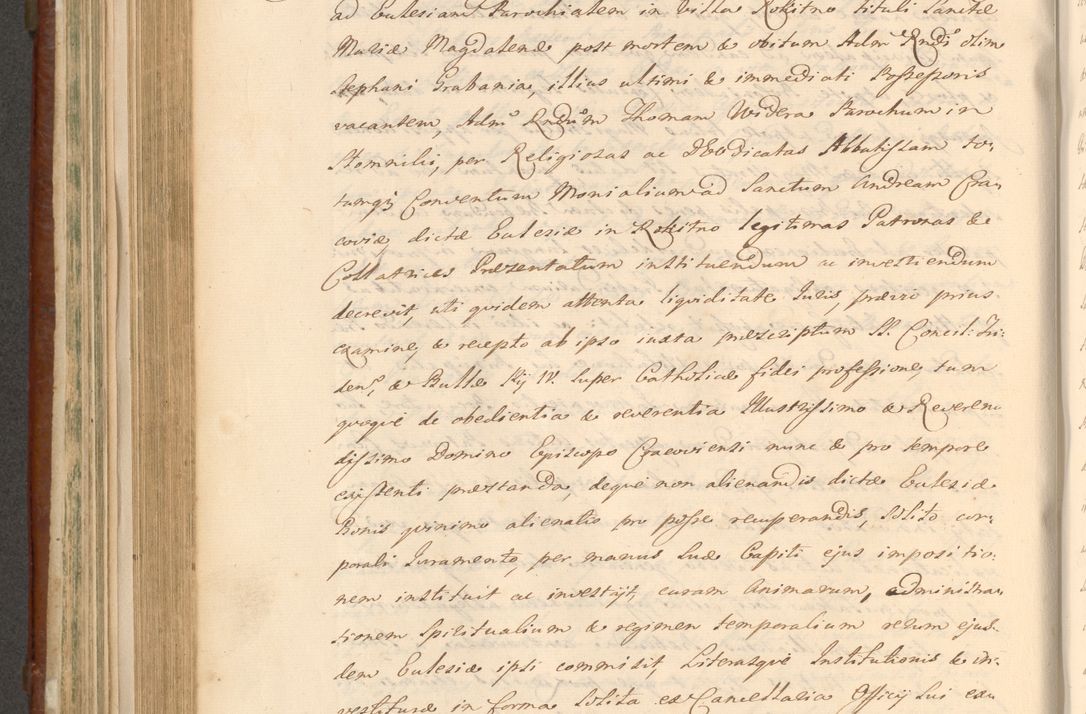 ad Eulesiam Parochialem in Villa Rokitno tituli Sanctæ
Mariæ Magdalenæ post mortem & obitum Adm Rndi olim
Stephani Grabania, illius ultimi & immediati Possessoris
vacantem, Admo Rndum Thomam Widera Parochum in
Stomniki, per Religiosas ac DEOdicatas Abbatissam to,
tumq; Conventum Monialium ad Sanctum Andream Cra,
coviæ, dictæ Eulesiæ in Rokitno legitimas Patronas &
Collatrices Præsentatum instituendum ac investiendum
decrevit, uti quidem attenta liquiditate Juris, prævio prius
examine, & recepto ab ipso iuxta præscriptum SS. Concil: Tri:
den: & Bullæ Pij IV. super Catholicæ fidei professione, tum
quoque de obedientia & reverentia Illustrissimo & Reveren
dissimo Domino Episcopo Cracoviensi nunc & pro tempore
existenti præstanda, deque non alienandis dictæ Eulesiæ
Bonis quinimo alienatis pro posse recuperandis, solito cor,
porali Juramento, per manus suæ Capiti ejus impositio,
nem instituit ac investijt, curam Animarum, administra,
tionem Spiritualium & regimen temporalium rerum ejus,
dem Eulesiæ ipsi commisit, Literasque Institutionis & in,
vestituræ in forma solita ex Cancellaria Officij sui ex